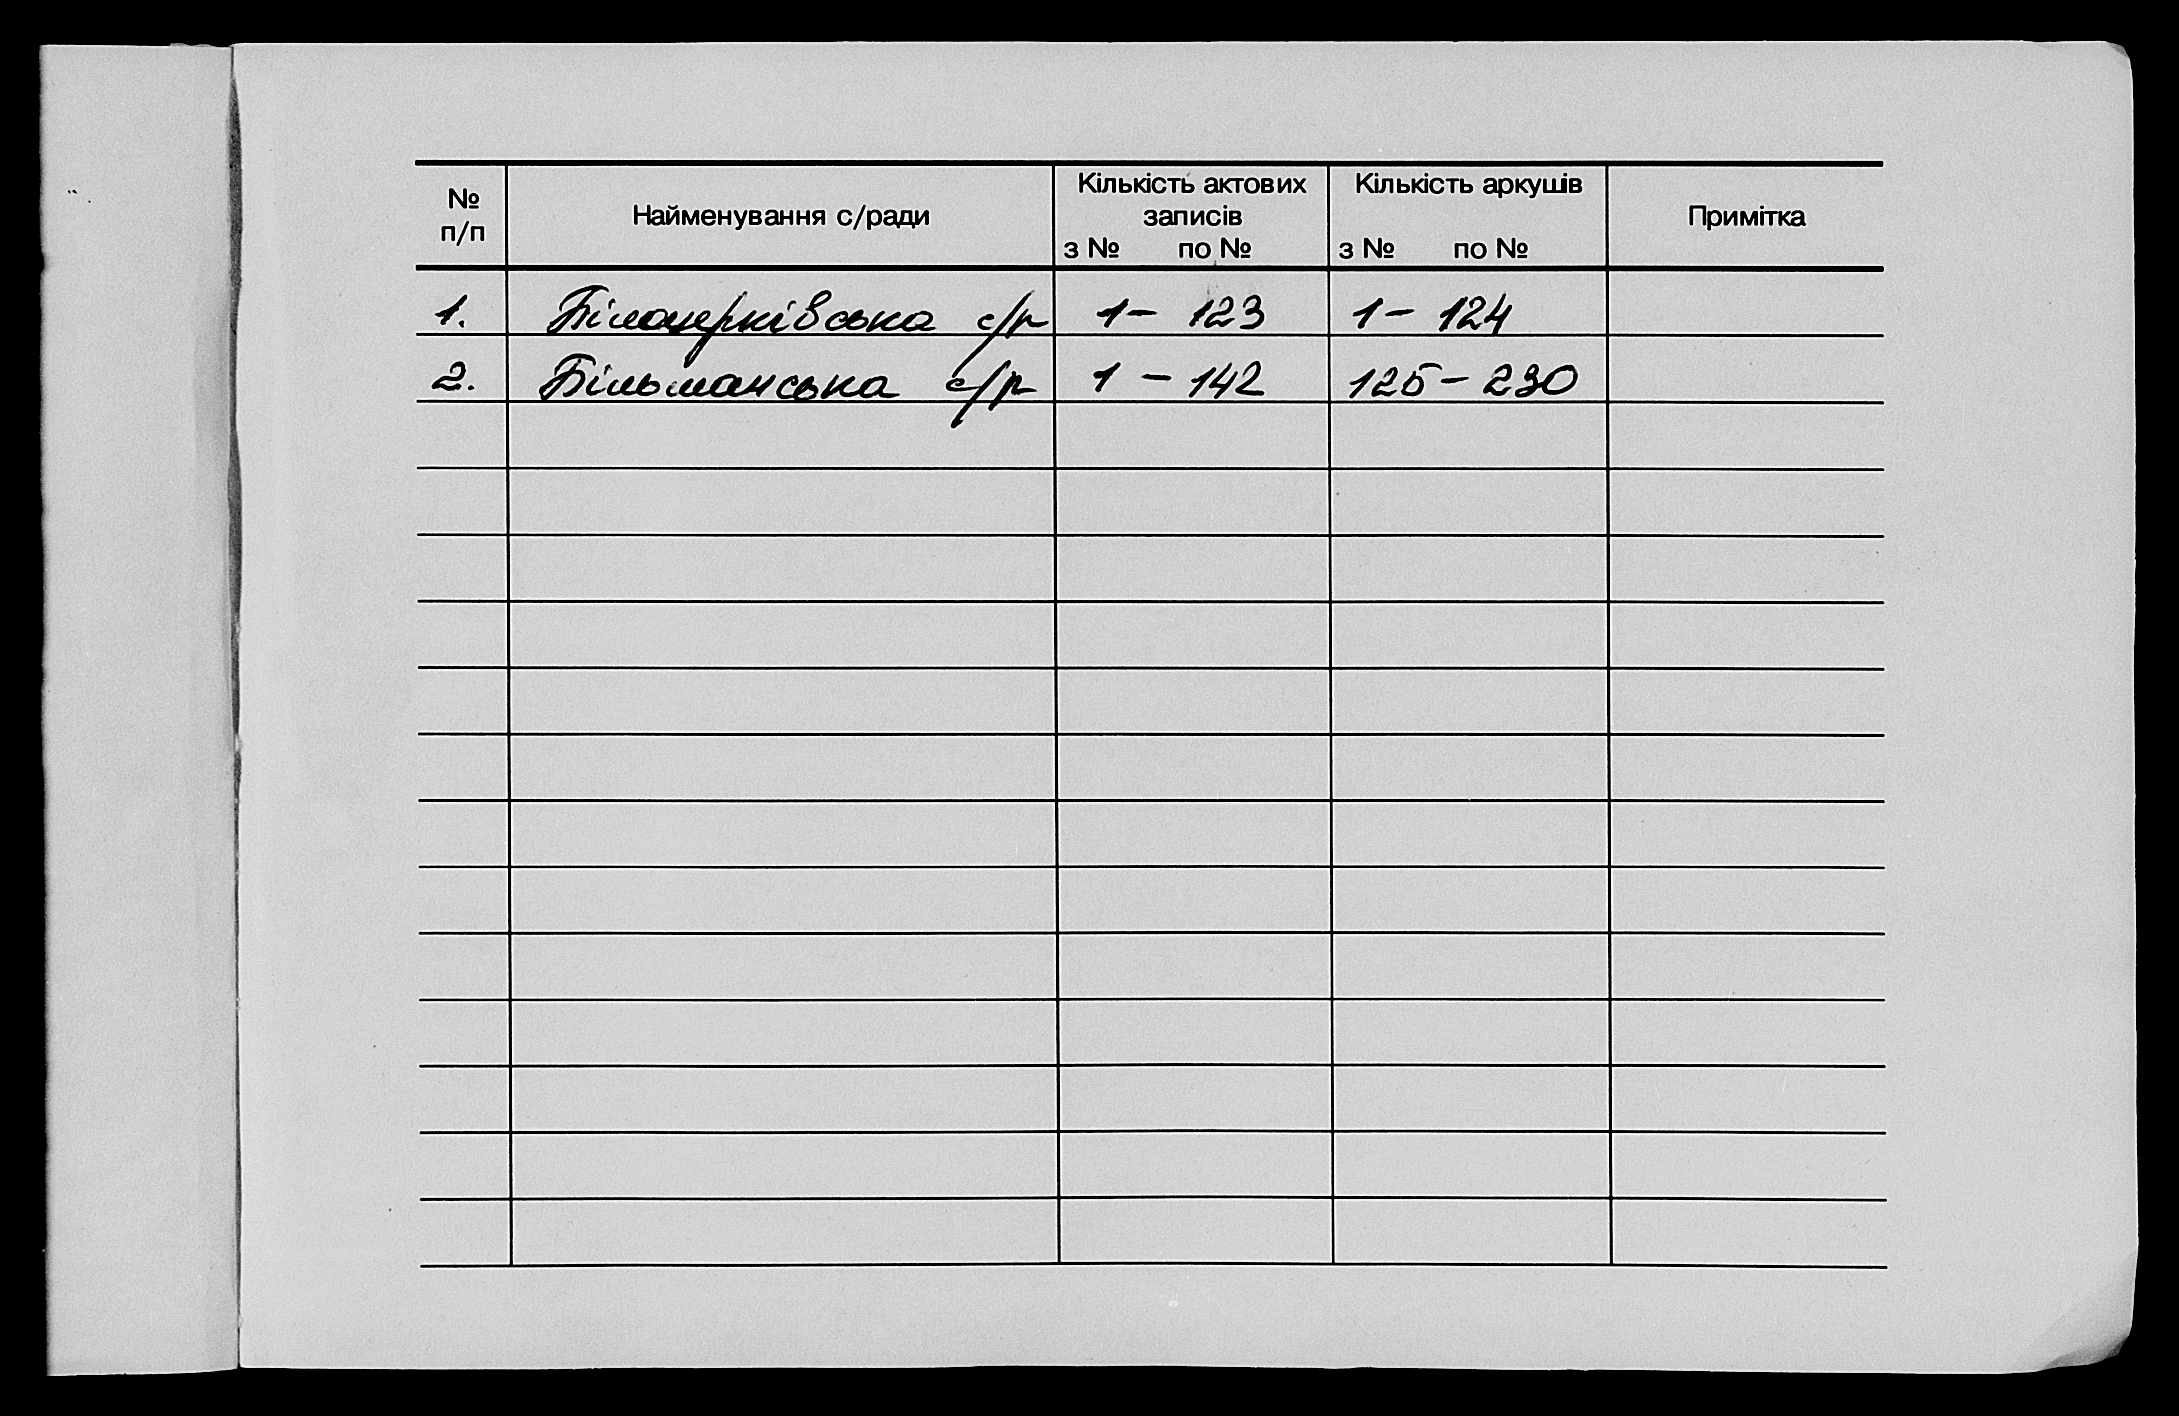 № п/п Найменування с/ради Кількість актових записів з № по № Кількість аркушів з № по № Примітка
1. Білоцерківська с/р 1 – 123 1 – 124
2. Більманська с/р 1 – 142 125 – 230